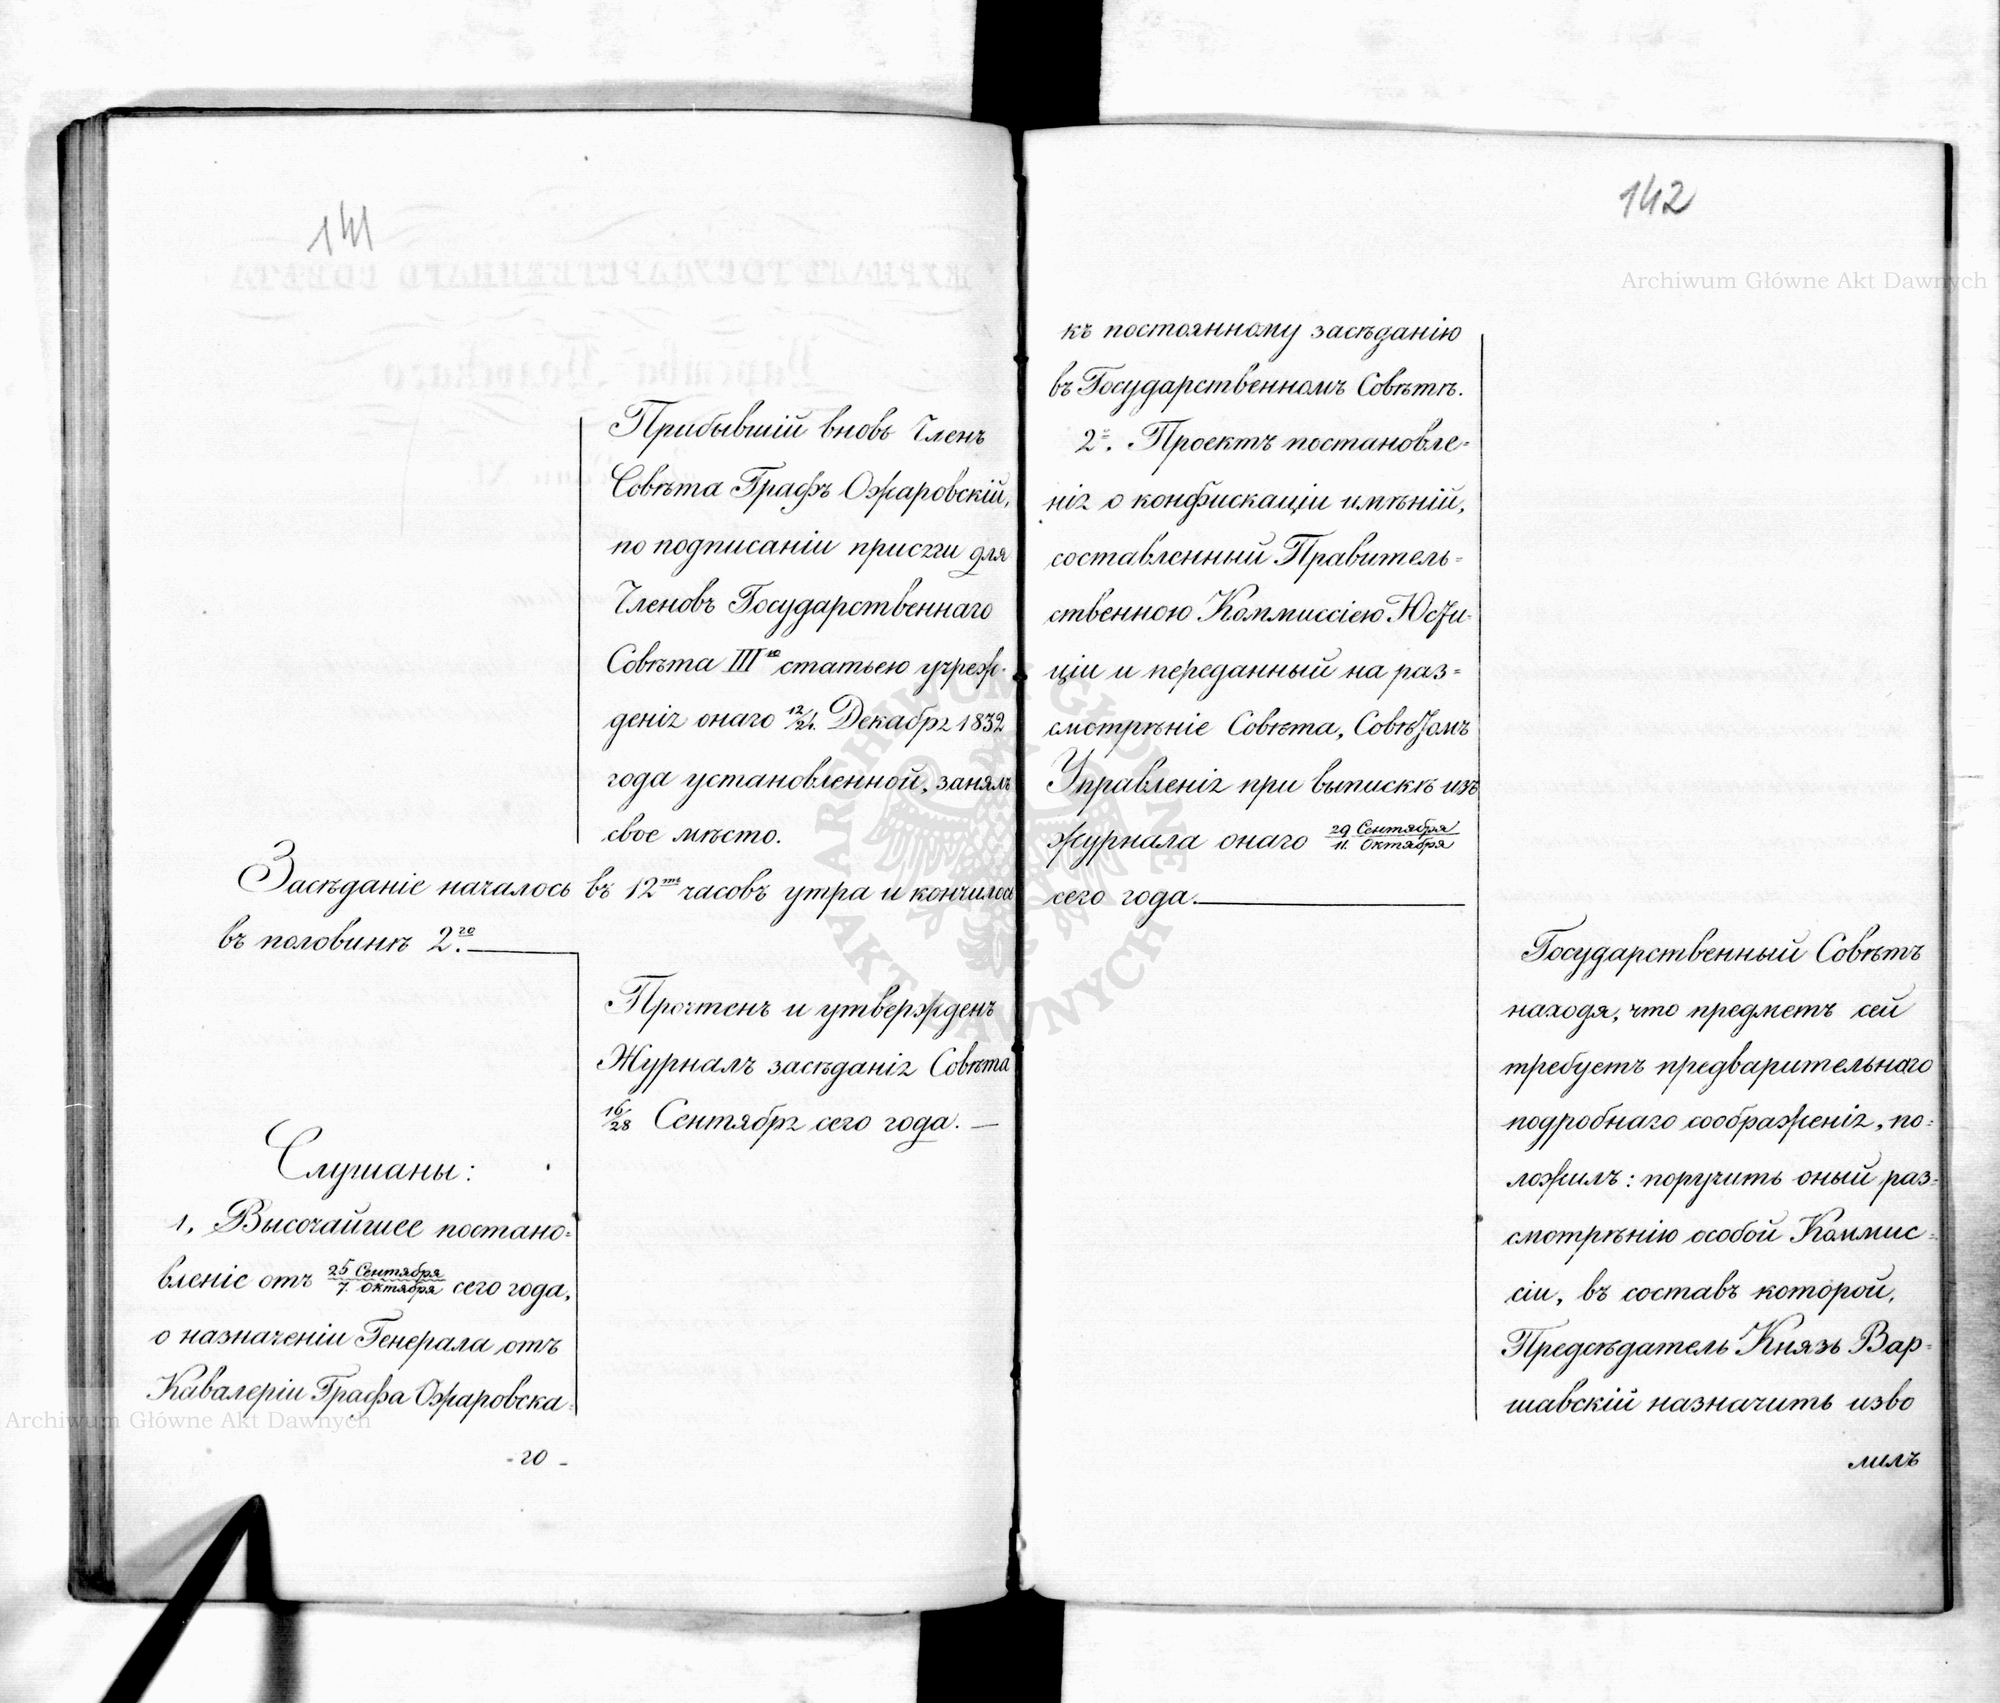 141
Прибывшій вновь Членъ
Совѣта Графъ Ожаровскій,
по подписаніи присяги для
Членовъ Государственнаго
Совѣта III ю статьею учреж-
денія онаго 12/24. Декабря 1832
года установленной, занялъ
свое мѣсто.
Засѣданіе началось въ 12ть часовъ утра и кончилось
въ половинѣ 2го.
Прочтенъ и утвержденъ
Журналъ засѣданія Совѣта
16/28 Сентября сего года. —
Слушаны:
1, Высочайшее постано-
вленіе отъ 25 Сентября/7. Октября сего года,
о назначеніи Генерала отъ
Кавалеріи Графа Ожаровска-
- го -
142
къ постоянному засѣданію
въ Государственномъ Совѣтѣ.
2. Проектъ постановле-
нія о конфискаціи имѣній,
составленный Правитель-
ственною Коммиссіею Юсти-
ціи и переданный на раз-
смотрѣніе Совѣта, Совѣтомъ
Управленія при выпискѣ изъ
журнала онаго 29 Сентября/11. Октября
сего года.
Государственный Совѣтъ
находя, что предметъ сей
требуетъ предварительнаго
подробнаго соображенія, по-
ложилъ: поручить оный раз-
смотрѣнію особой Коммис-
сіи, въ составъ которой,
Предсѣдатель Князь Вар-
шавскій назначить изво
лилъ
Archiwum Główne Akt Dawnych
Archiwum Główne Akt Dawnych
ARCHIWUM GŁÓWNE AKT DAWNYCH